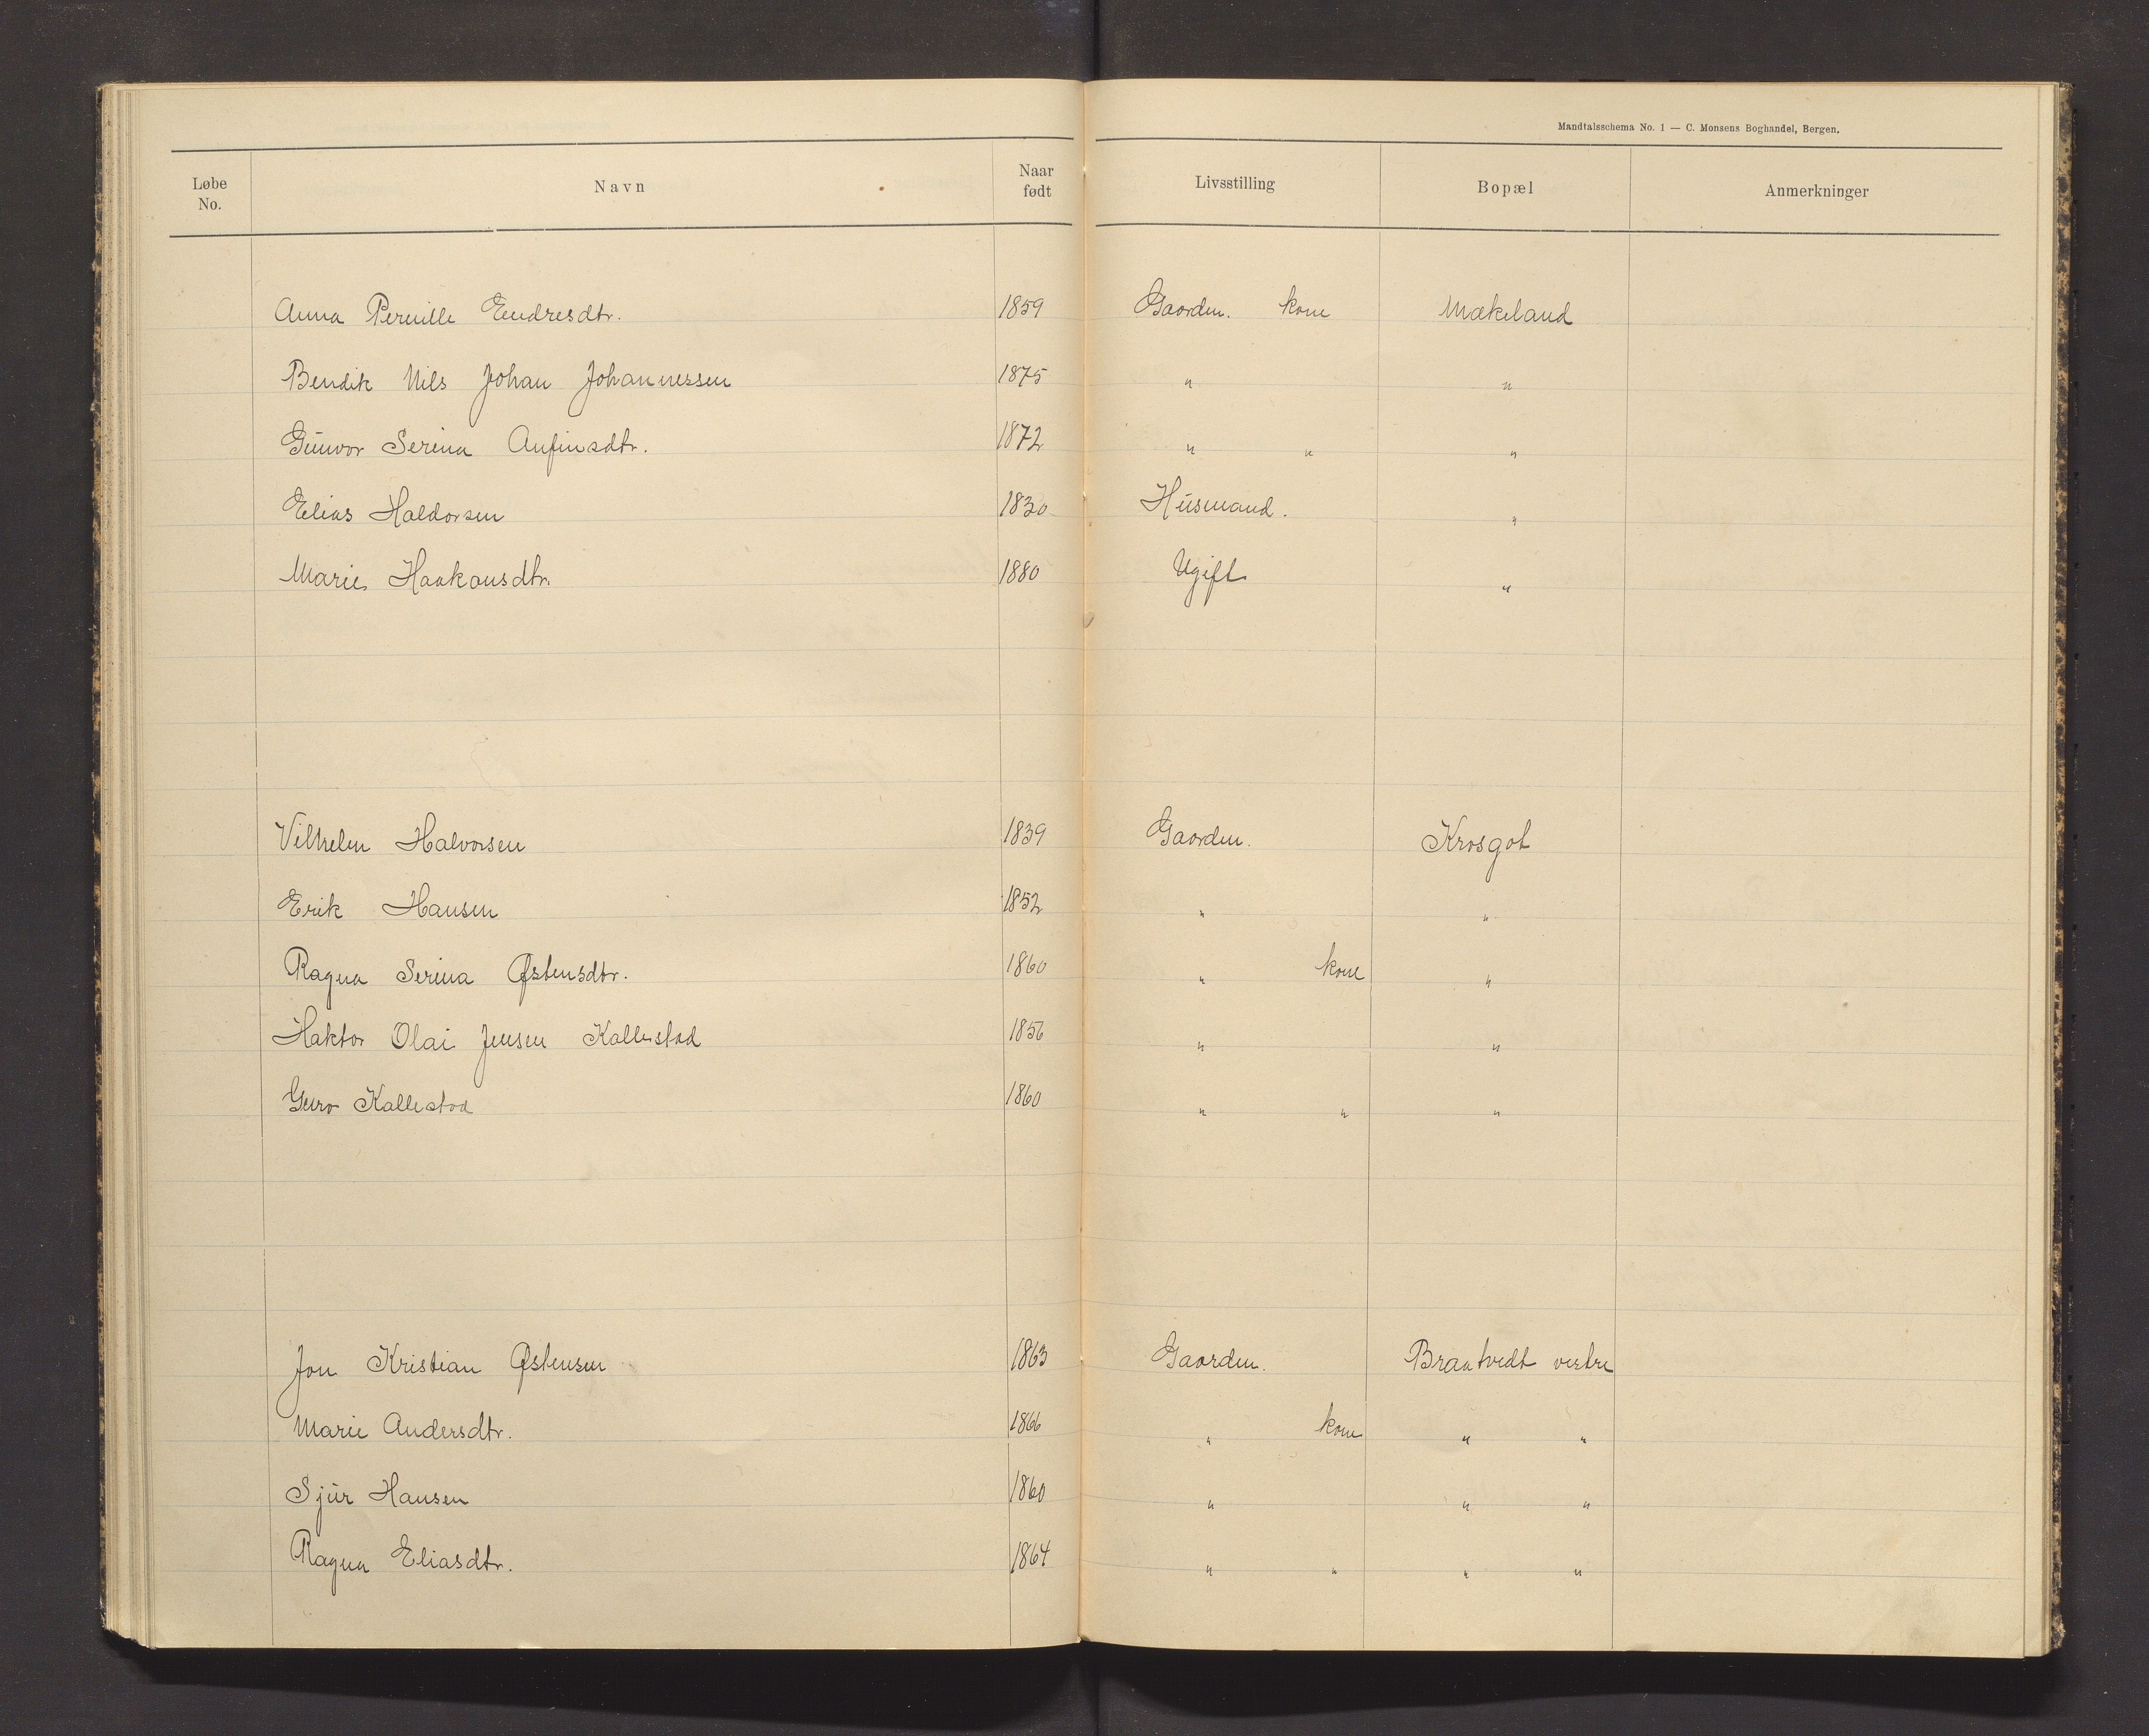 Mandtalsschema No. 1 — C. Monsens Boghandel, Bergen.
Løbe No. Navn Naar født Livsstilling Bopæl Anmerkninger
Anna Pernille Endresdtr. 1859 Gaardm. kone Mækeland
Bendik Nils Johan Johannessen 1875 " "
Gunvor Serina Anfinsdtr. 1872 " " "
Elias Haldorsen 1830 Husmand. "
Marie Haakonsdtr. 1880 Ugift "
Vilhelm Halvorsen 1839 Gaardm. Krosgot
Erik Hansen 1852 " "
Ragna Serina Østensdtr. 1860 " kone "
Haktor Olai Jensen Kallestad 1856 " "
Guro Kallestad 1860 " " "
Jon Kristian Østensen 1863 Gaardm. Brantvedt vestre
Marie Andersdtr. 1866 " kone " "
Sjur Hansen 1860 " " "
Ragna Eliasdtr. 1864 " " " "